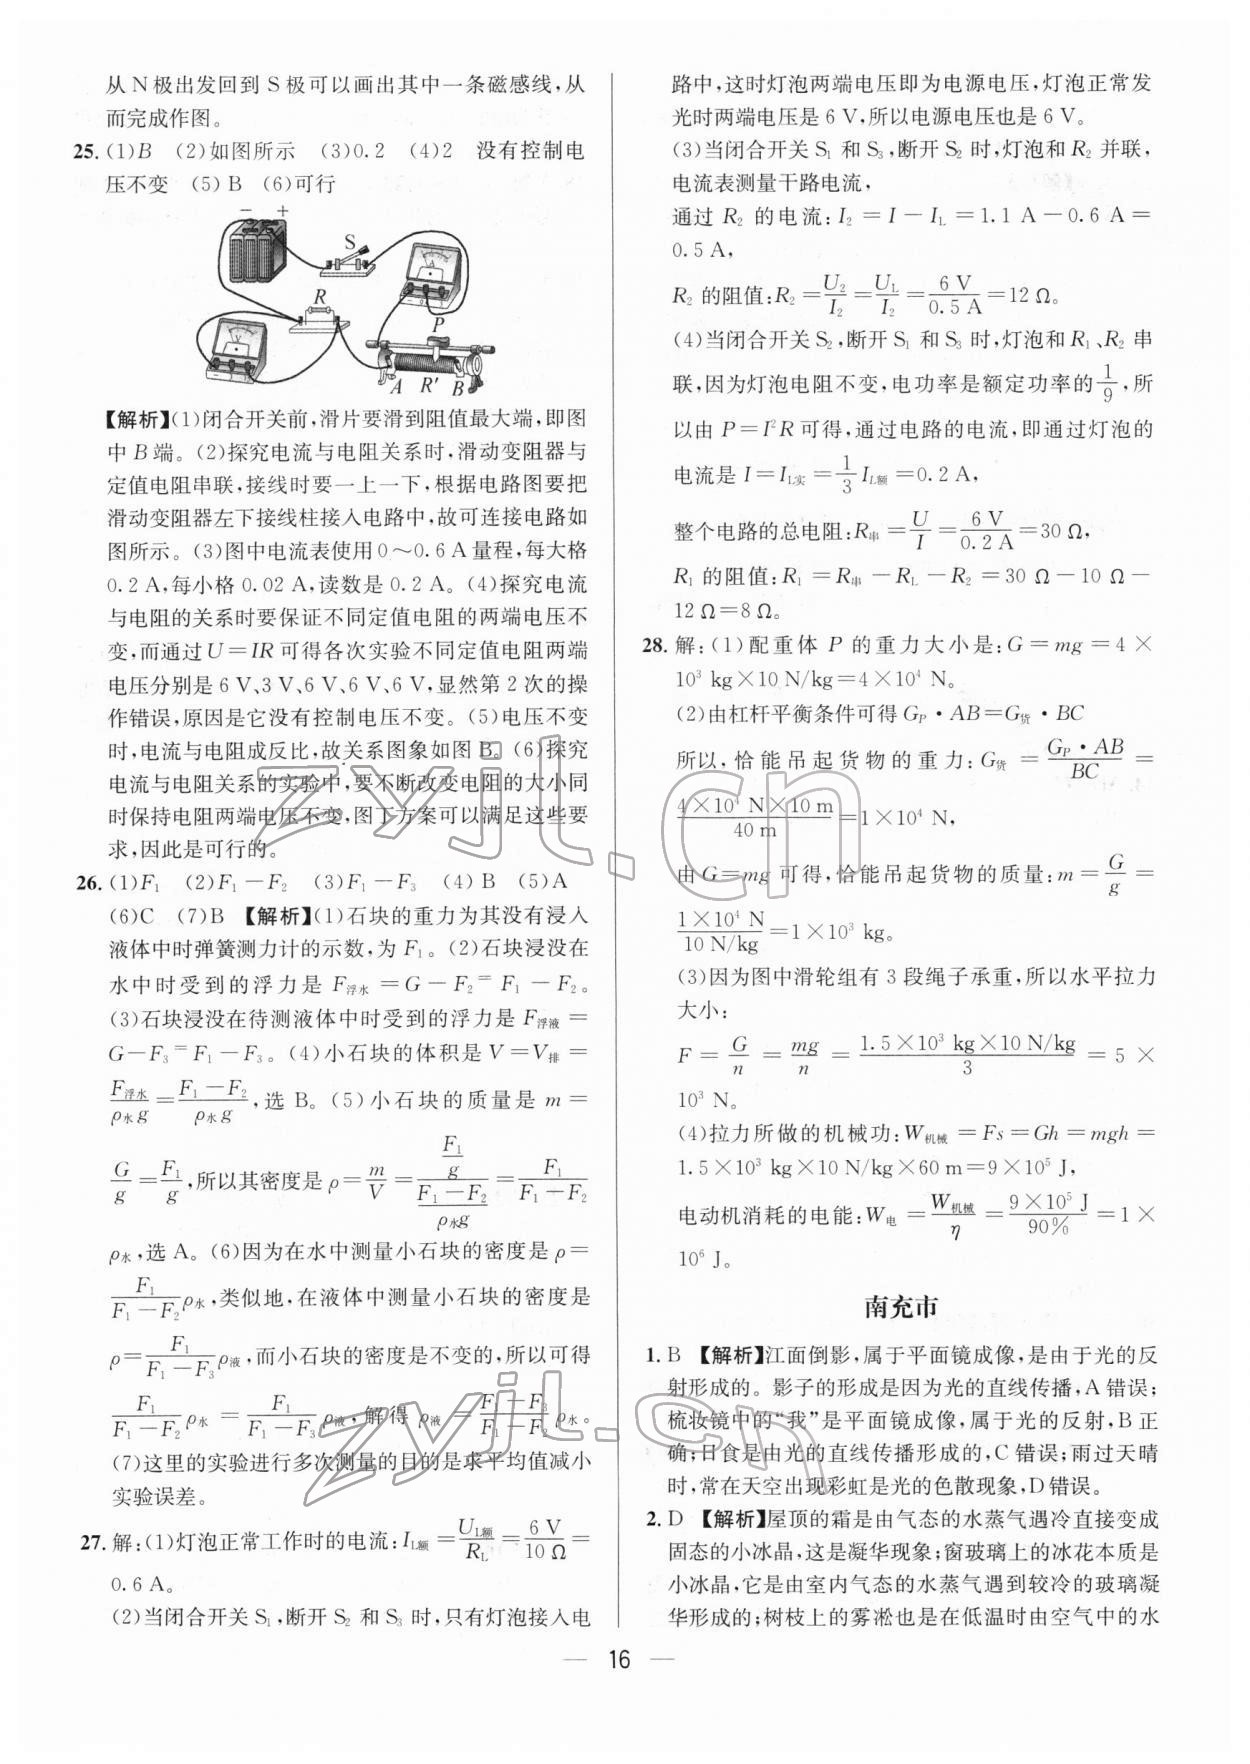 从N极出发回到S极可以画出其中一条磁感线,从
而完成作图。
25. (1)B (2)如图所示 (3)0.2 (4)2 没有控制电
压不变 (5)B (6)可行
− +
S
A
R
P
V
A R′ B
【解析】(1)闭合开关前,滑片要滑到阻值最大端,即图
中B端。(2)探究电流与电阻关系时,滑动变阻器与
定值电阻串联,接线时要一上一下,根据电路图要把
滑动变阻器左下接线柱接入电路中,故可连接电路如
图所示。(3)图中电流表使用0～0.6 A量程,每大格
0.2 A,每小格0.02 A,读数是0.2 A。(4)探究电流
与电阻的关系时要保证不同定值电阻的两端电压不
变,而通过U=IR可得各次实验不同定值电阻两端
电压分别是6 V、3 V、6 V、6 V、6 V,显然第2次的操
作错误,原因是它没有控制电压不变。(5)电压不变
时,电流与电阻成反比,故关系图象如图B。(6)探究
电流与电阻关系的实验中,要不断改变电阻的大小同
时保持电阻两端电压不变,图丁方案可以满足这些要
求,因此是可行的。
26. (1)F₁ (2)F₁−F₂ (3)F₁−F₃ (4)B (5)A
(6)C (7)B 【解析】(1)石块的重力为其没有浸入
液体中时弹簧测力计的示数,为F₁。(2)石块浸没在
水中时受到的浮力是F浮水=G−F₂=F₁−F₂。
(3)石块浸没在待测液体中时受到的浮力是F浮液=
G−F₃=F₁−F₃。(4)小石块的体积是V=V排=
F浮水/ρ水g=(F₁−F₂)/ρ水g,选B。(5)小石块的质量是m=
G/g=F₁/g,所以其密度是ρ=m/V=(F₁/g)/((F₁−F₂)/ρ水g)=F₁/(F₁−F₂)
ρ水,选A。(6)因为在水中测量小石块的密度是ρ=
F₁/(F₁−F₂)ρ水,类似地,在液体中测量小石块的密度是
ρ=F₁/(F₁−F₃)ρ液,而小石块的密度是不变的,所以可得
F₁/(F₁−F₂)ρ水=F₁/(F₁−F₃)ρ液,解得ρ液=(F₁−F₃)/(F₁−F₂)ρ水。
(7)这里的实验进行多次测量的目的是求平均值减小
实验误差。
27. 解:(1)灯泡正常工作时的电流:IL额=UL额/RL=6 V/10 Ω=
0.6 A。
(2)当闭合开关S₁,断开S₂和S₃时,只有灯泡接入电
路中,这时灯泡两端电压即为电源电压,灯泡正常发
光时两端电压是6 V,所以电源电压也是6 V。
(3)当闭合开关S₁和S₃,断开S₂时,灯泡和R₂并联,
电流表测量干路电流,
通过R₂的电流:I₂=I−IL=1.1 A−0.6 A=
0.5 A,
R₂的阻值:R₂=U₂/I₂=UL/I₂=6 V/0.5 A=12 Ω。
(4)当闭合开关S₂,断开S₁和S₃时,灯泡和R₁、R₂串
联,因为灯泡电阻不变,电功率是额定功率的1/9,所
以由P=I²R可得,通过电路的电流,即通过灯泡的
电流是I=IL实=1/3IL额=0.2 A,
整个电路的总电阻:R串=U/I=6 V/0.2 A=30 Ω,
R₁的阻值:R₁=R串−RL−R₂=30 Ω−10 Ω−
12 Ω=8 Ω。
28. 解:(1)配重体P的重力大小是:G=mg=4×
10³ kg×10 N/kg=4×10⁴ N。
(2)由杠杆平衡条件可得GP·AB=G货·BC
所以,恰能吊起货物的重力:G货=GP·AB/BC=
4×10⁴ N×10 m/40 m=1×10⁴ N,
由G=mg可得,恰能吊起货物的质量:m=G/g=
1×10⁴ N/10 N/kg=1×10³ kg。
(3)因为图中滑轮组有3段绳子承重,所以水平拉力
大小:
F=G/n=mg/n=1.5×10³ kg×10 N/kg/3=5×
10³ N。
(4)拉力所做的机械功:W机械=Fs=Gh=mgh=
1.5×10³ kg×10 N/kg×60 m=9×10⁵ J,
电动机消耗的电能:W电=W机械/η=9×10⁵ J/90%=1×
10⁶ J。
南充市
1. B 【解析】江面倒影,属于平面镜成像,是由于光的反
射形成的。影子的形成是因为光的直线传播,A错误;
梳妆镜中的“我”是平面镜成像,属于光的反射,B正
确;日食是由光的直线传播形成的,C错误;雨过天晴
时,常在天空出现彩虹是光的色散现象,D错误。
2. D 【解析】屋顶的霜是由气态的水蒸气遇冷直接变成
固态的小冰晶,这是凝华现象;窗玻璃上的冰花本质是
小冰晶,它是由室内气态的水蒸气遇到较冷的玻璃凝
华形成的;树枝上的雾凇也是在低温时由空气中的水
— 16 —
zyjl.cn
zyjl.cn